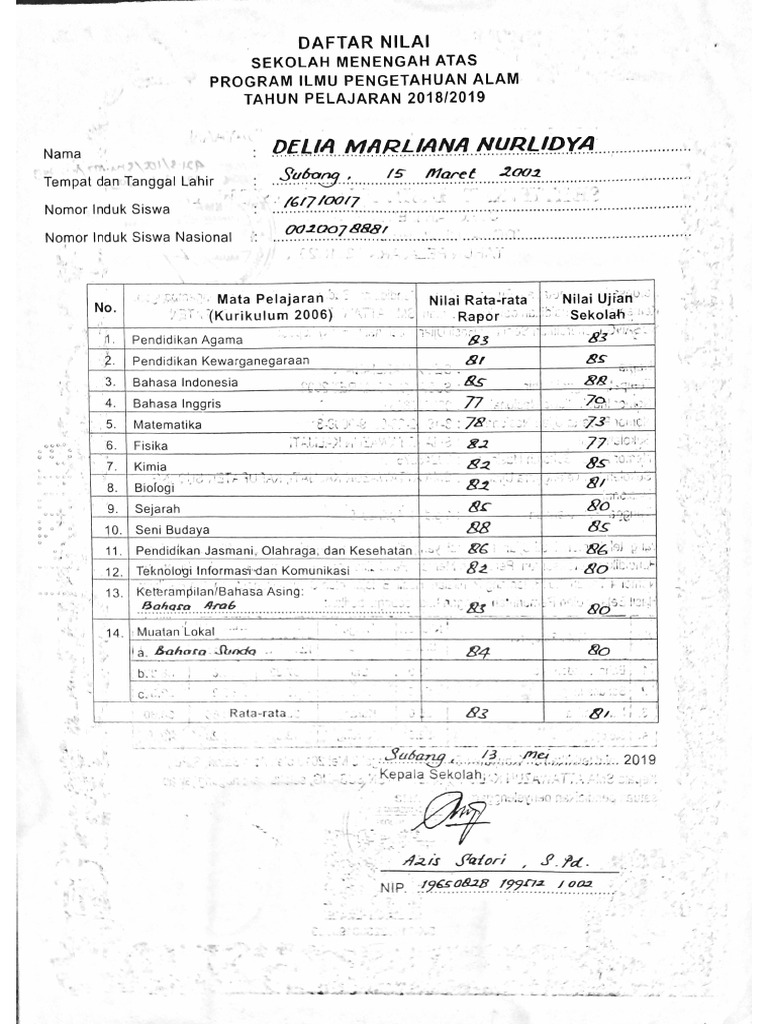 DAFTAR NILAI
SEKOLAH MENENGAH ATAS
PROGRAM ILMU PENGETAHUAN ALAM
TAHUN PELAJARAN 2018/2019
Nama : DELIA MARLIANA NURLIDYA
Tempat dan Tanggal Lahir : Subang, 15 Maret 2002
Nomor Induk Siswa : 161710017
Nomor Induk Siswa Nasional : 0020078881
No. Mata Pelajaran (Kurikulum 2006) Nilai Rata-rata Rapor Nilai Ujian Sekolah
1. Pendidikan Agama 83 83
2. Pendidikan Kewarganegaraan 81 85
3. Bahasa Indonesia 85 88
4. Bahasa Inggris 77 70
5. Matematika 78 73
6. Fisika 82 77
7. Kimia 82 85
8. Biologi 82 81
9. Sejarah 85 80
10. Seni Budaya 88 85
11. Pendidikan Jasmani, Olahraga, dan Kesehatan 86 86
12. Teknologi Informasi dan Komunikasi 82 80
13. Keterampilan/Bahasa Asing:
Bahasa Arab 83 80
14. Muatan Lokal
a. Bahasa Sunda 84 80
b.
c.
Rata-rata 83 81
Subang, 13 Mei 2019
Kepala Sekolah,
Azis Satori, S.Pd.
NIP. 19650828 199512 1 002